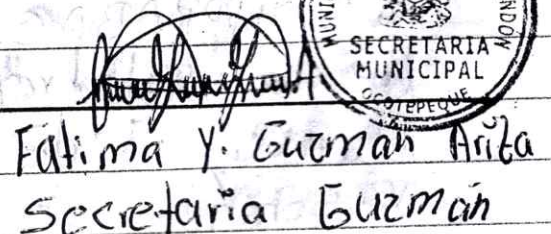 SECRETARIA
MUNICIPAL
OCOTEPEQUE
Fatima Y. Guzman Arita
Secretaria Guzman